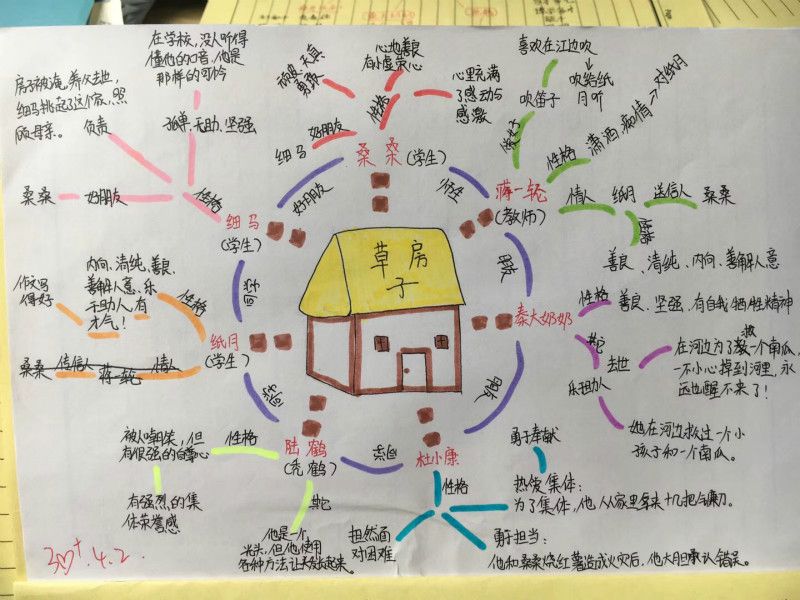 草房
子
桑桑(学生)
性格
顽皮、天真
勇敢
心地善良
有小虚荣心
心里充满
了感动与
感激
好朋友
细马
师生
蒋一轮
(教师)
吹笛子
喜欢在江边吹
吹给纸
月听
性格
潇洒、痴情→对纸月
情人
纸月
送信人
桑桑
性格
善良、清纯、内向、善解人意
秦大奶奶
性格
善良、坚强、有自我牺牲精神
其它
去世
在河边为了救一个南瓜,
一不小心掉到河里,永
远也醒不来了!
乐于助人
她在河边救过一个小
孩子和一个南瓜。
杜小康
性格
勇于奉献
热爱集体:
为了集体,他从家里拿来十几把镰刀。
勇于担当:
他和桑桑烧红薯造成火灾后,他大胆承认错误。
坦然面
对困难
同学
陆鹤
(秃鹤)
性格
被人嘲笑,但
有很强的自尊心
有强烈的集
体荣誉感
其它
他是一个
光头,但他使用
各种方法让头发长起来。
同学
纸月
(学生)
性格
内向、清纯、善良、
善解人意、乐
于助人、有
才气!
作文写
得好
情人
蒋一轮
传信人
桑桑
同学
细马
(学生)
性格
孤单、无助、坚强
在学校,没人听得
懂他的口音,他是
那样的可怜
负责
房子被淹,养父去世,
细马挑起了这个家,照
顾母亲。
好朋友
桑桑
好朋友